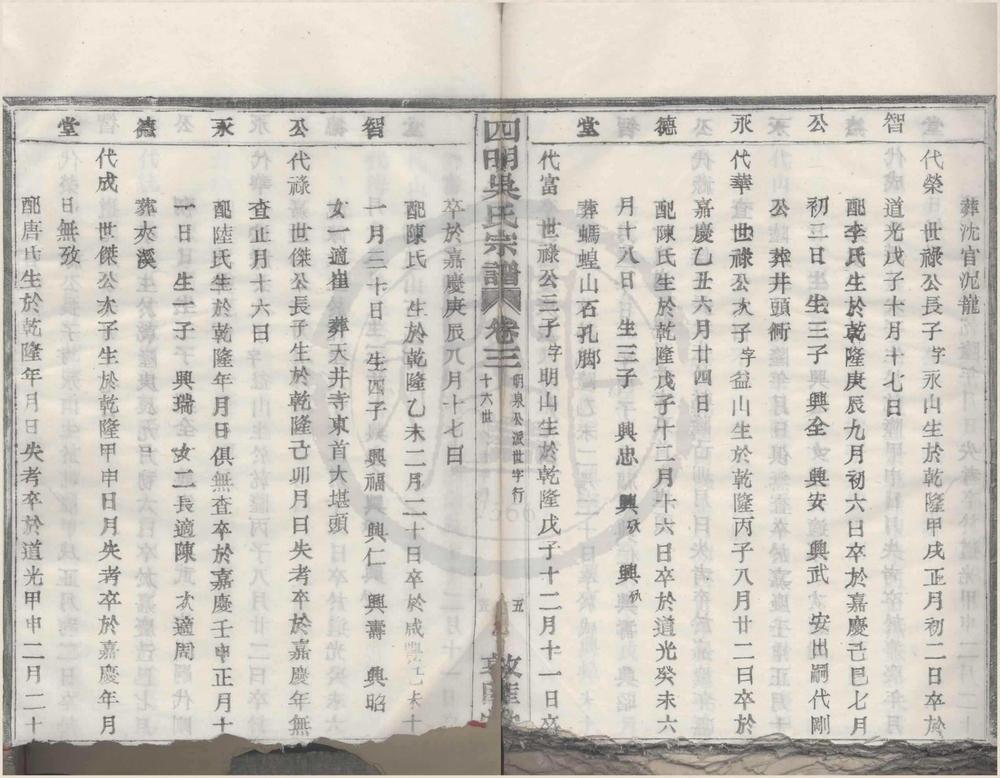 葬沈官沉龍
代榮 世祿公長子字永山生於乾隆甲戌正月初二日卒於
智
道光戊子十月十七日
配李氏生於乾隆庚辰九月初六日卒於嘉慶己巳七月
公
初三日 生三子 興全 興安 興武 安出嗣代剛
公 葬井頭衕
永
代華 世祿公次子字益山生於乾隆丙子八月廿二日卒於
嘉慶乙丑六月廿四日
德
配陳氏生於乾隆戊子十二月十六日卒於道光癸未六
月十八日 生三子 興忠 興 興
堂
葬螞蝗山石孔脚
代富 世祿公三子字明山生於乾隆戊子十二月十一日卒
四明吳氏宗譜 卷三 明泉公派世字行 十六世 五 敦
卒於嘉慶庚辰八月十七日
配陳氏 生於乾隆乙未二月二十日卒於咸豐 未十
智
一月三十日 生四子 興福 興仁 興壽 興昭
女一適崔 葬天井寺東首大堪頭
公
代祿 世傑公長子生於乾隆己卯月日失考卒於嘉慶年無
查正月十六日
永
配陸氏生於乾隆年月日俱無查卒於嘉慶壬申正月十
一日 生一子 興瑞 女二長適陳 次適周
德
葬大溪
代成 世傑公次子生於乾隆甲申日月失考卒於嘉慶年月
堂
日無攷
配唐氏生於乾隆年月日失考卒於道光甲申二月二十